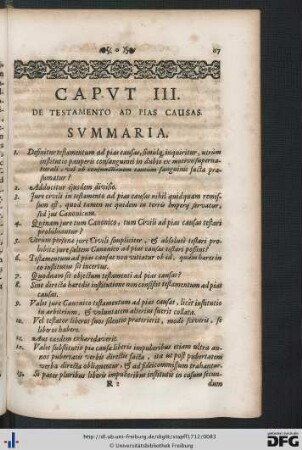 117
CAPVT III.
DE TESTAMENTO AD PIAS CAUSAS.
SVMMARIA.
1. Definitur testamentum ad pias causas, simulq; inquiritur, utrùm
institutio pauperis consanguinei in dubio ex motivo superna-
turali, vel ob conjunctionem sanguinis facta præ-
sumatur?
2. Adducitur ejusdem divisio.
3. Jure civili in testamento ad pias causas nihil quidquam remis-
sum est, quod tamen ne quidem in terris Imperij servatur,
sed jus Canonicum.
4. Quinam jure tum Canonico, tum Civili ad pias causas testari
prohibeantur?
5. Utrùm persona jure Civili simpliciter, & absolutè testari pro-
hibita jure saltem Canonico ad pias causas testari possint?
6. Testamentum ad pias causas non vitiatur ob id, quòd hæres in
eo institutus sit incertus.
7. Quodnam sit objectum testamenti ad pias causas?
8. Sine directa hæredis institutione non consistit testamentum ad pias
causas.
9. Valet jure Canonico testamentum ad pias causas, licèt institutio
in arbitrium, & voluntatem alterius fuerit collata.
10. Vel testator liberos suos silentio præterierit, modò sciverit, se
liberos habere.
11. eosdem exhæredaverit.
12. Valet substitutio pia causa liberis impuberibus etiam ultra an-
nos pubertatis verbis directis facta, ita ut post pubertatem
verba directa obliquentur, & ad fideicommissum trahantur.
13. Si pater pluribus liberis impuberibus institutis in casum secun-
R 2
dum
http://dl.ub.uni-freiburg.de/diglit/stapff1712/0083
© Universitätsbibliothek Freiburg